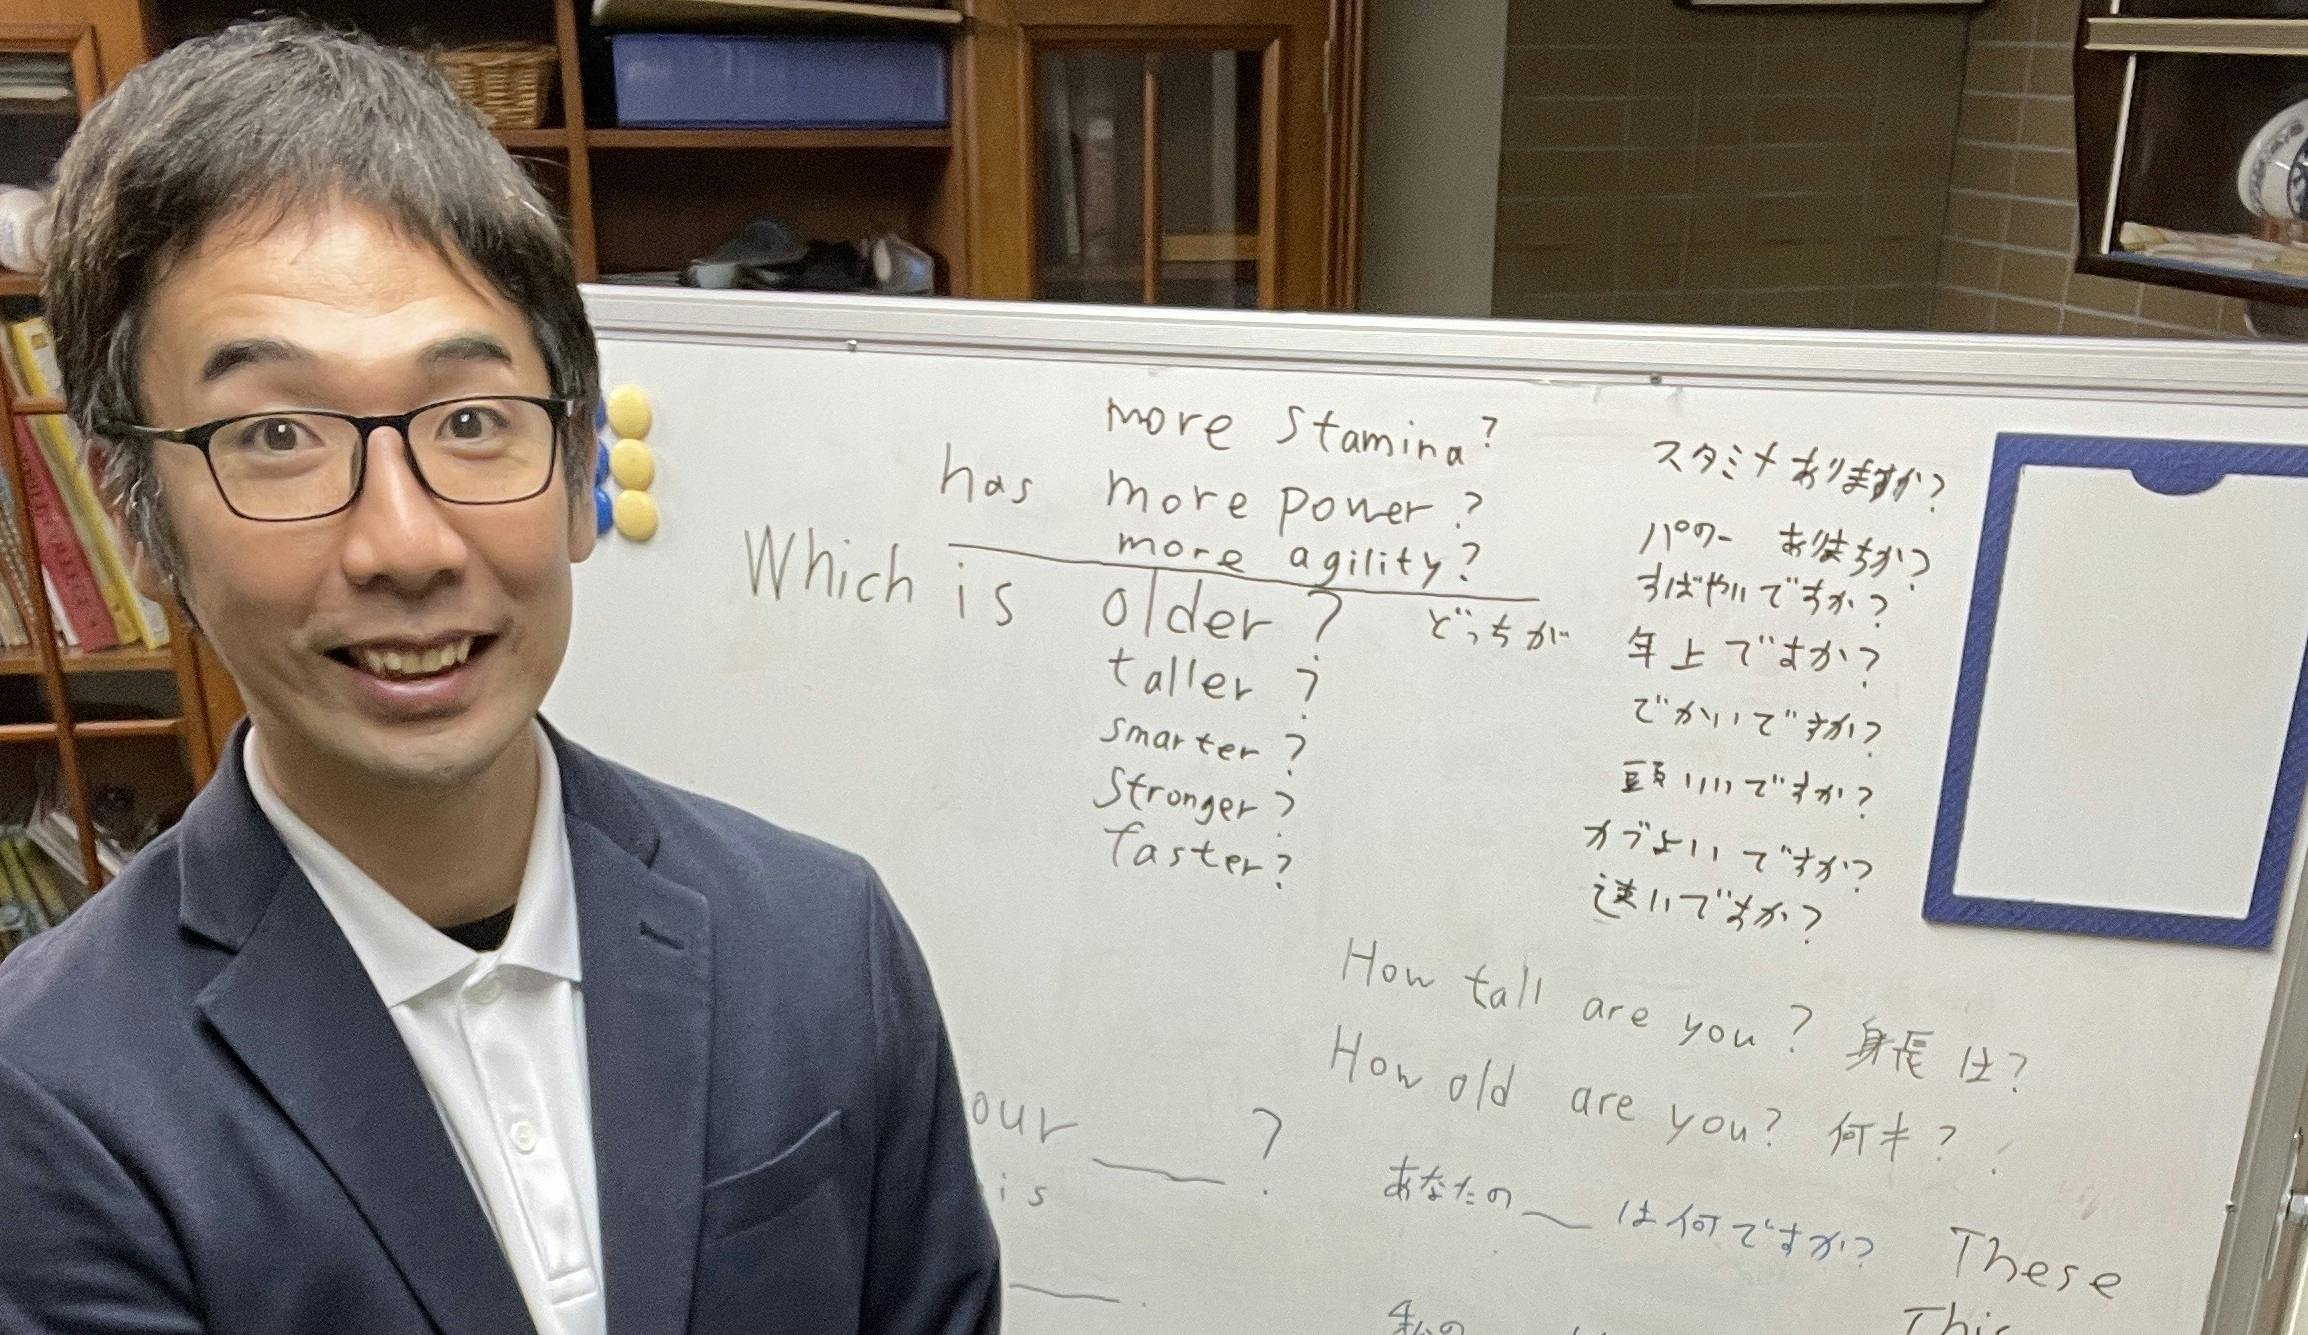 more stamina?
スタミナありますか?
has more power?
パワー ありますか?
more agility?
すばやいですか?
Which is older? どっちが 年上ですか?
taller? でかいですか?
smarter? 頭いいですか?
stronger? カづよいですか?
faster? 速いですか?
How tall are you? 身長は?
How old are you? 何才?
our ___?
あなたの___は何ですか?
is
These
私の
This